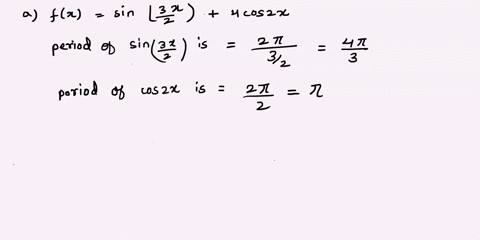 a) f(x) = sin [3x/2) + 4cos2x
period of sin(3x/2) is = 2π/3/2 = 4π/3
poriod of cos2x is = 2π/2 = π